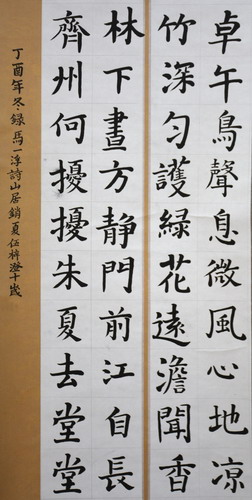 卓午鳥聲息微風心地涼
竹深匀護緑花遠澹聞香
林下晝方静門前江自長
齊州何擾擾朱夏去堂堂
丁酉年冬·録馬一浮詩山居銷夏伍梓澄十歲